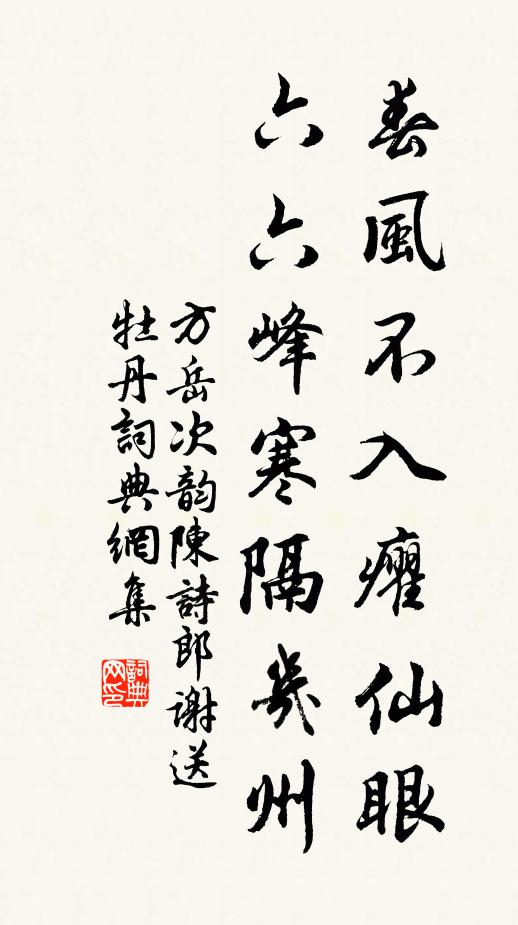 春風不入癯仙眼
六六峰寒隔幾州
方岳次韵陳詩郎谢送
牡丹詞典網集
詞典网印